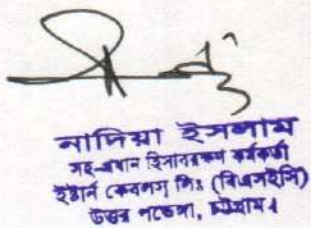 নাদিয়া ইসলাম
সহ-প্রধান হিসাবরক্ষণ কর্মকর্তা
ইষ্টার্ন কেবলস্ লিঃ (বিএসইসি)
উত্তর পতেঙ্গা, চট্টগ্রাম।